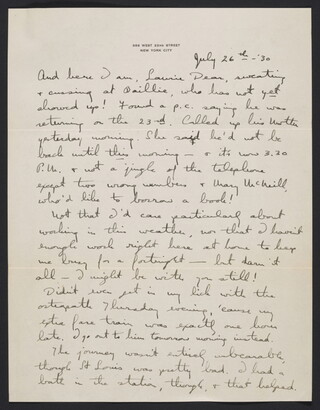 WEST 22ND STREET
NEW YORK CITY
July 26th - '30
And here I am, Laurie Dear, sweating
& cussing at Baillie, who has not yet
showed up! Found a p.c. saying he was
returning on the 23rd. Called up his Mother
yesterday morning. She said he'd not be
back until this morning — & it's now 3.30
P.M. & not a jingle of the telephone
except two wrong numbers & Mary McNeill,
who'd like to borrow a book!
Not that I'd care particularly about
working in this weather, nor that I haven't
enough work right here at home to keep
me busy for a fortnight — but darn it
all — I might be with you still!
Didn't even get in my lick with the
osteopath Thursday evening, 'cause my
extra fare train was exactly one hour
late. I go out to him tomorrow morning instead.
The journey wasn't entirely unbearable,
though St Louis was pretty bad. I had a
bath in the station, though, & that helped.